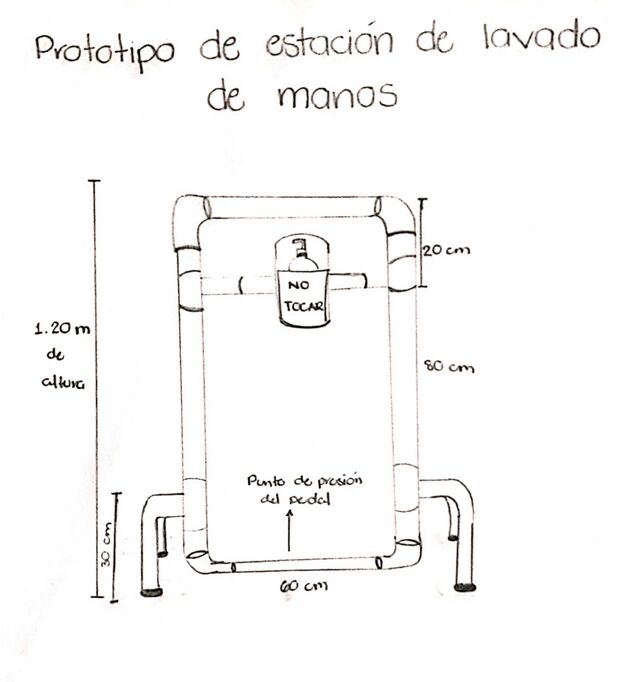 Prototipo de estación de lavado
de manos
20 cm
NO
TOCAR
1.20 m
de
altura
80 cm
Punto de presión
del pedal
30 cm
60 cm